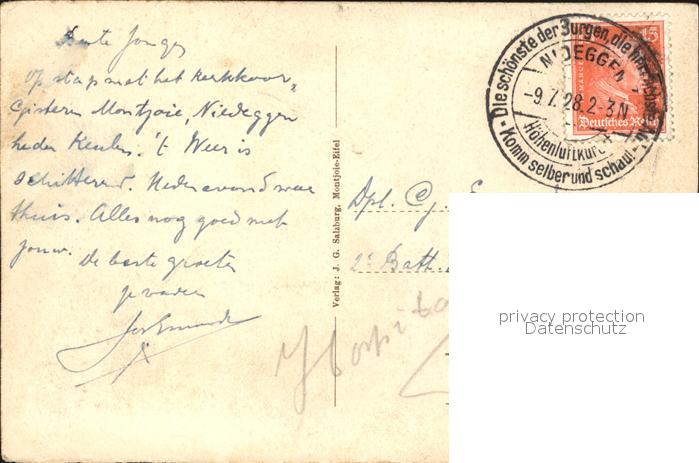 Beste Jonges
Op stap met het kerkkoor,
Gisteren Montjoie, Niedeggen
heden Keulen. 't Weer is
schitterend. Heden avond weer
thuis. Alles nog goed met
jouw. de beste groeten
je vader
Verlag: J. G. Salzburg, Montjoie-Eifel
Dpl. Cg.
2e Batt.
Hospita
Die schönste der Burgen, die
NIDEGGEN
-9.7.28.2-3N
Höhenluftkur
Komm selber und schau!
15
Deutsches Reich
privacy protection
Datenschutz